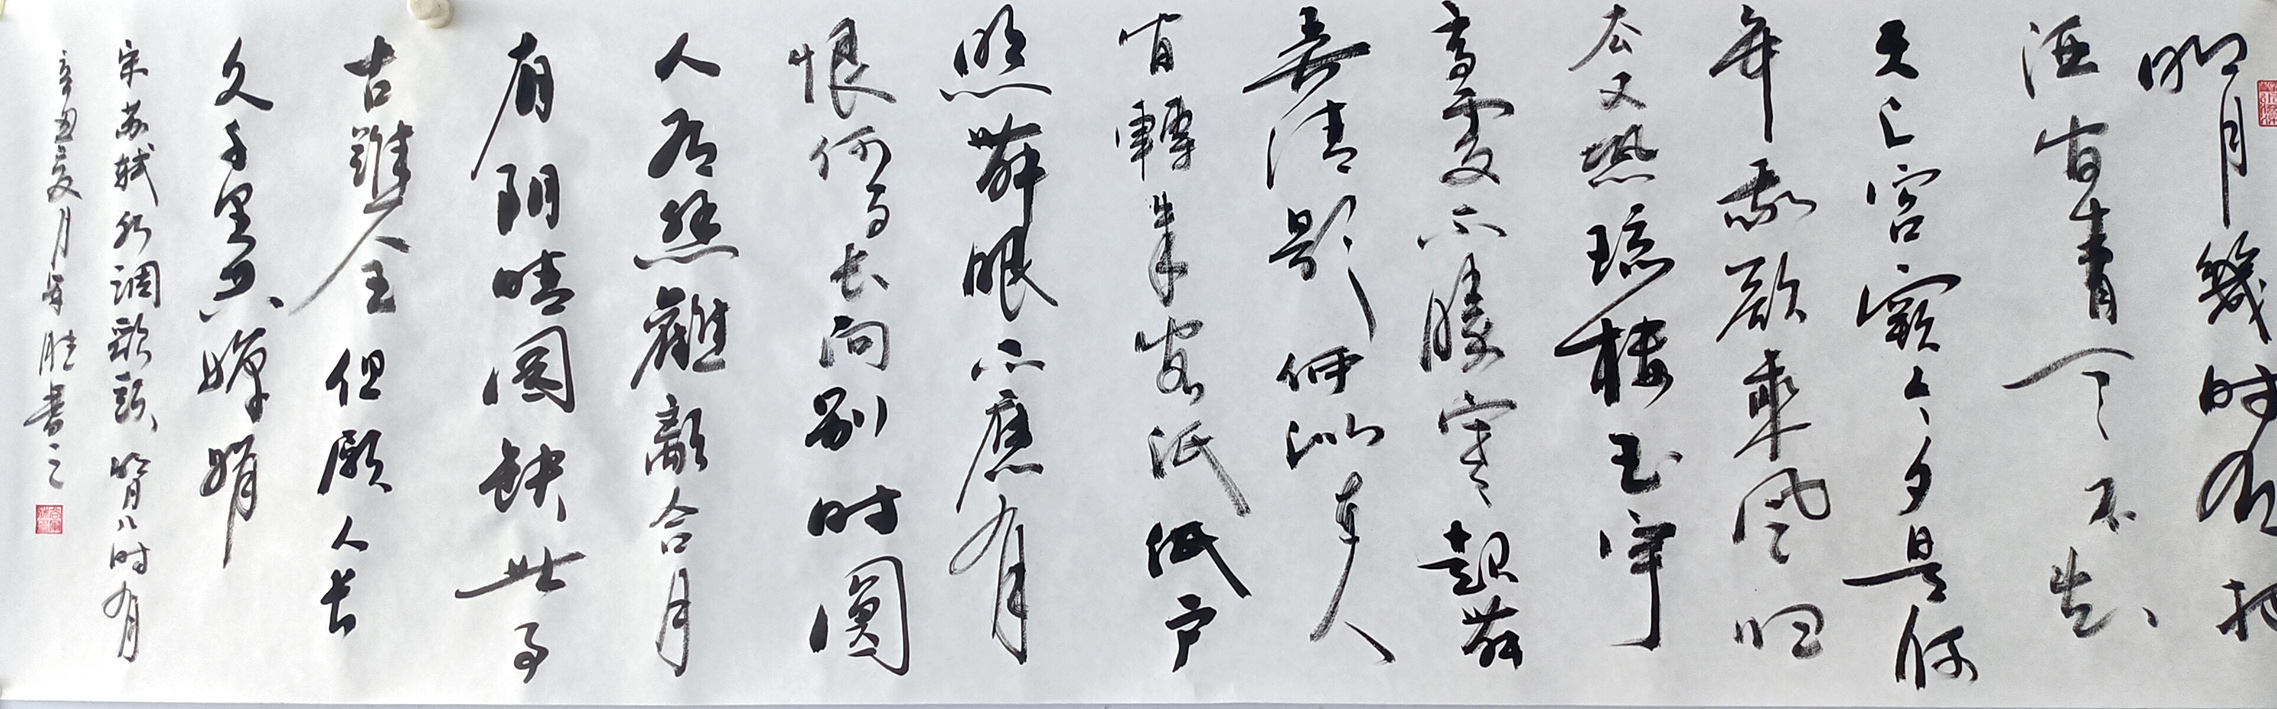 明月幾时有把
酒问青天不知
天上宫阙今夕是何
年我欲乘风归
去又恐琼楼玉宇
高處不勝寒起舞
弄清影何似在人
间轉朱阁低户
照無眠不應有
恨何事长向别时圆
人有悲歡離合月
有阴晴圆缺此事
古難全但願人长
久千里共嬋娟
宋苏轼水调歌頭明月几时有
辛丑夏月胜書之